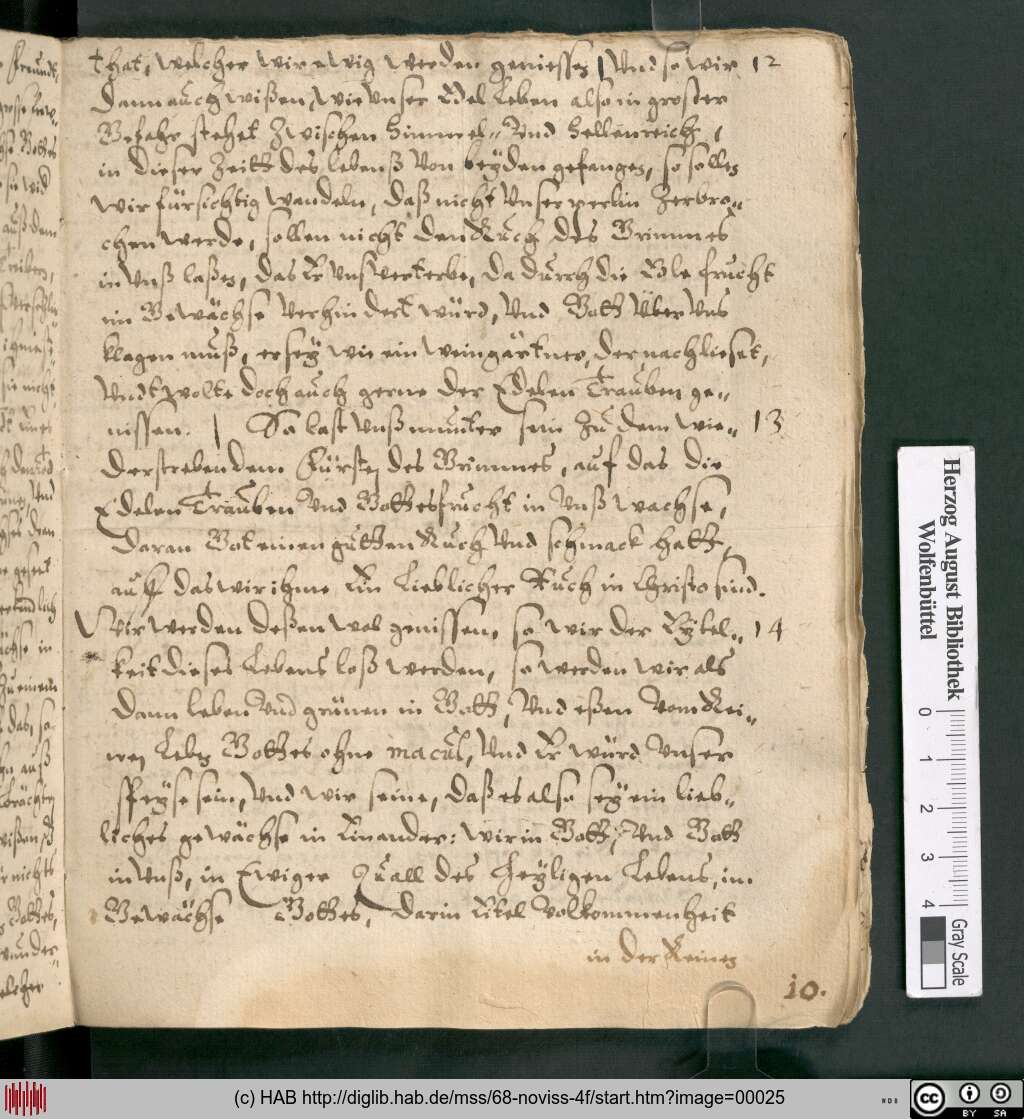 that, welcher wir ewig werden geniessen / Und so wir 12
dann auch wißen, wie Unser Edel Leben also in groster
Gefahr stehet zwischen Himmel- Und Hellenreich,
in dieser Zeitt des lebenß Von beyden gefangen, so sollen
wir fürsichtig wandeln, daß nicht Unser perlin zerbro-
chen werde, sollen nicht den Ruch des Grimmes
in Unß laßen, das Er Uns verterbe, da durch die Ele frucht
im Gewächse Verhindert würd, Und Gott Über Uns
klagen muß, er sey wie ein weingärtner, der nachlieset,
Undt wolte doch auch gerne der Edelen Trauben ge-
nissen. / So last Unß munter sein zu dem wie- 13
derstrebendem Fürsten des Grimmes, auf das die
Edelen Trauben Und Gottesfrucht in Unß wachse,
daran Got einen gutten Ruch Und schmack hatt,
auff das wir ihme Ein Lieblicher Ruch in Christo sind.
Wir werden deßen wol genissen, so wir der Eytel- 14
keit dieses Lebens loß werden, so werden wir als
dann leben Und grünen in Gott, Und eßen Vom Rei-
nen Leben Gottes ohne macul, Und Er würd Unser
speyse sein, Und wir seine, daß es also sey ein lieb-
liches gewächse in Einander: wir in Gott, Und Gott
in Unß, in Ewiger Quall des Heyligen Lebens, im
Gewächse Gottes, darin Eitel Volkommenheit
in der Reinen
10.
Herzog August Bibliothek
Wolfenbüttel
0 1 2 3 4
Gray Scale
(c) HAB http://diglib.hab.de/mss/68-noviss-4f/start.htm?image=00025
cc BY SA